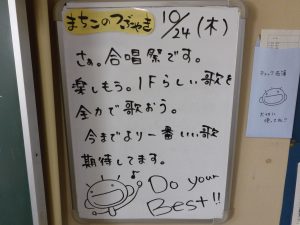 まちこのつぶやき 10/24(木)
さぁ。合唱祭です。
楽しもう。1Fらしい歌を
全力で歌おう。
今までより一番いい歌
期待してます。
Do your
Best!!